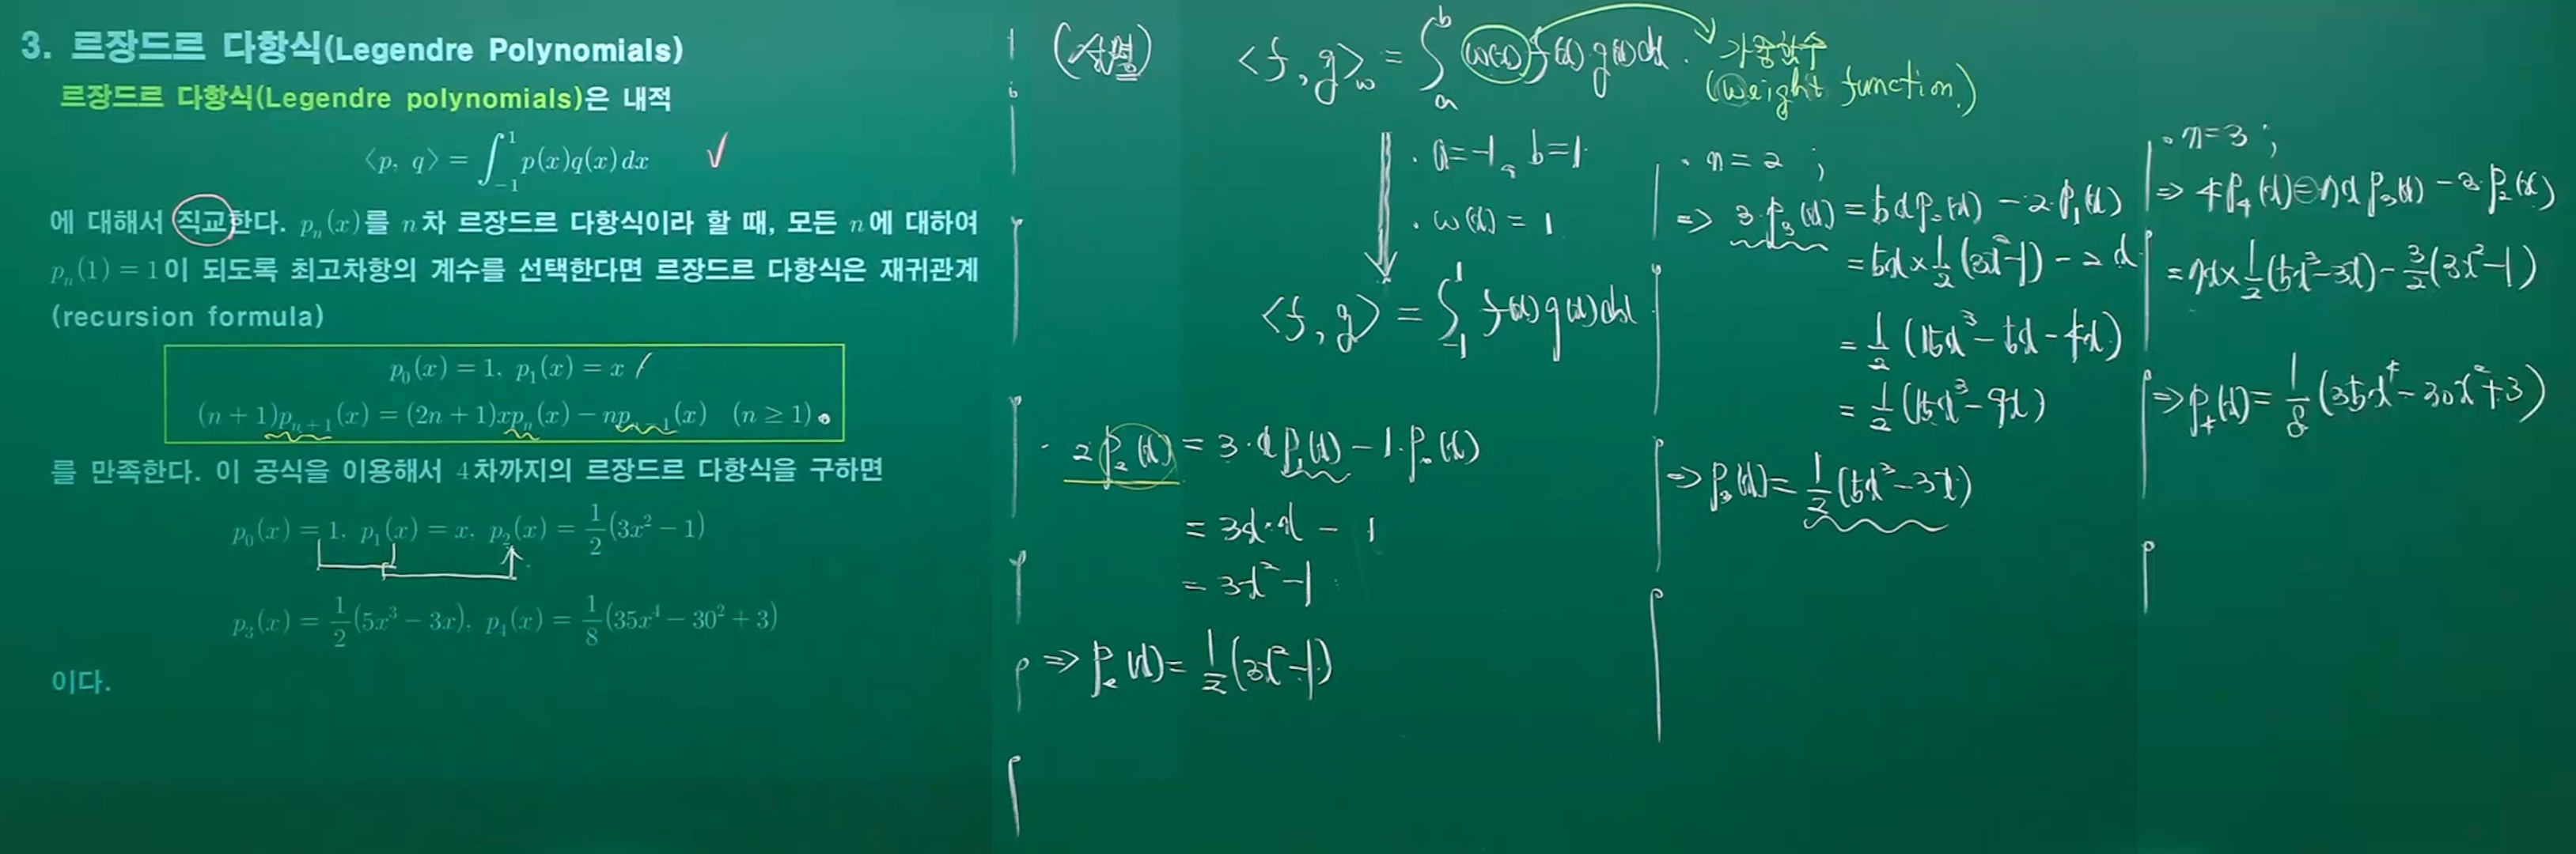 3. 르장드르 다항식(Legendre Polynomials)
르장드르 다항식(Legendre polynomials)은 내적
⟨p, q⟩ = ∫₋₁¹ p(x)q(x) dx ✓
에 대해서 직교한다. pₙ(x)를 n차 르장드르 다항식이라 할 때, 모든 n에 대하여
pₙ(1) = 1이 되도록 최고차항의 계수를 선택한다면 르장드르 다항식은 재귀관계
(recursion formula)
p₀(x) = 1, p₁(x) = x
(n + 1)pₙ₊₁(x) = (2n + 1)xpₙ(x) − npₙ₋₁(x) (n ≥ 1).
를 만족한다. 이 공식을 이용해서 4차까지의 르장드르 다항식을 구하면
p₀(x) = 1, p₁(x) = x, p₂(x) = 1/2(3x² − 1)
p₃(x) = 1/2(5x³ − 3x), p₄(x) = 1/8(35x⁴ − 30² + 3)
이다.
(설명)
⟨f, g⟩w = ∫ₐᵇ w(x) f(x) g(x) dx.
가중함수
(Weight function.)
· a = −1, b = 1
· w(x) = 1
⟨f, g⟩ = ∫₋₁¹ f(x) g(x) dx
· 2 p₂(x) = 3·x p₁(x) − 1·p₀(x)
= 3x·x − 1
= 3x² − 1
⇒ p₂(x) = 1/2 (3x² − 1)
· n = 2 ;
⇒ 3·p₃(x) = 5x p₂(x) − 2·p₁(x)
= 5x × 1/2 (3x² − 1) − 2x
= 1/2 (15x³ − 5x − 4x)
= 1/2 (15x³ − 9x)
⇒ p₃(x) = 1/2 (5x³ − 3x)
· n = 3 ;
⇒ 4p₄(x) = 7x p₃(x) − 3·p₂(x)
= 7x × 1/2 (5x³ − 3x) − 3/2 (3x² − 1)
⇒ p₄(x) = 1/8 (35x⁴ − 30x² + 3)